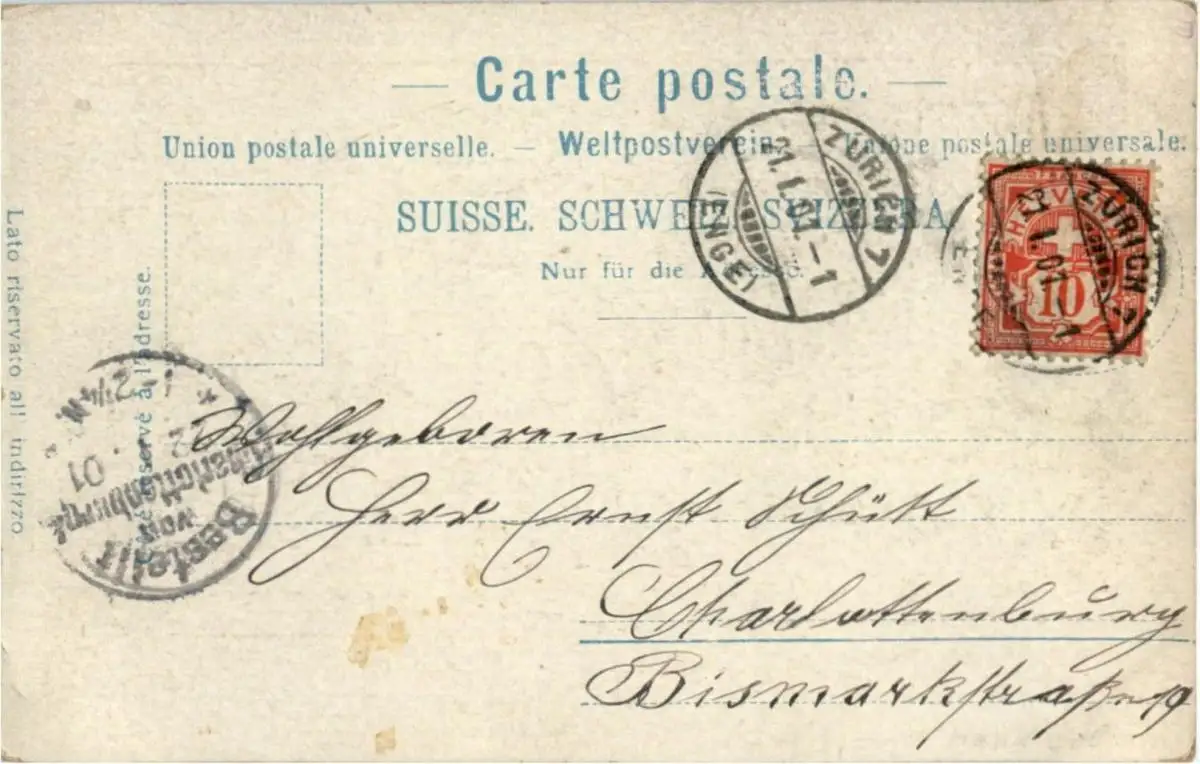 — Carte postale. —
Union postale universelle. — Weltpostverein. — Unione postale universale.
SUISSE. SCHWEIZ. SVIZZERA
Nur für die Adresse.
Lato riservato all indirizzo
Côté réservé à l'adresse.
ZÜRICH 1
21.I.01.–1
(ENGE)
ZÜRICH 1
I.01.–1
HELVETIA
10
Bestellt
vom
Charlottenburg
01
1 - 2 1/4 N.
Wohlgeboren
Herr Ernst Schütt
Charlottenburg
Bismarkstraße 19